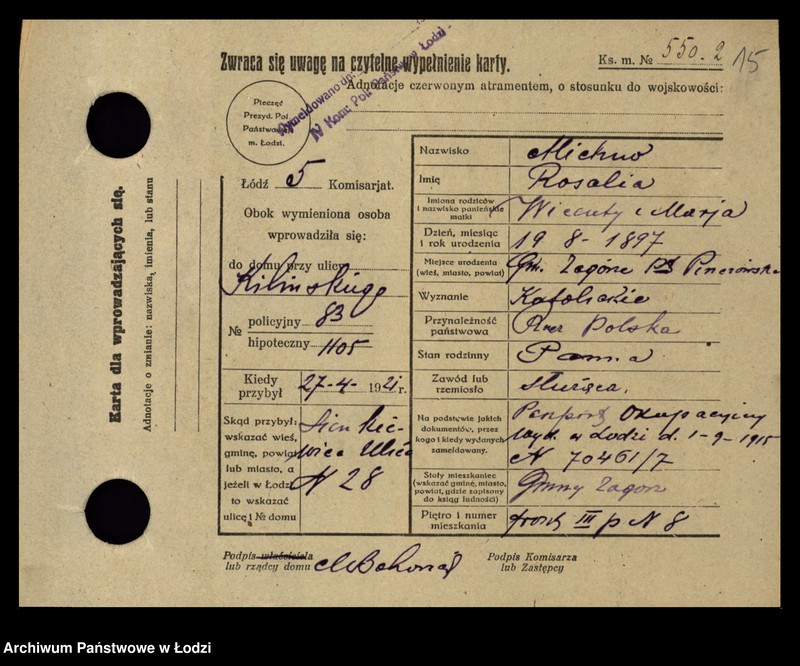 Zwraca się uwagę na czytelne wypełnienie karty.
Ks. m. № 550.2
15
Wymeldowano dn.
IV Kom. Pol. Państw. w Łodzi
Adnotacje czerwonym atramentem, o stosunku do wojskowości:
Pieczęć
Prezyd. Pol.
Państwowej
m. Łodzi.
Karta dla wprowadzających się.
Adnotacje o zmianie: nazwiska, imienia, lub stanu
Łódź 5 Komisarjat.
Obok wymieniona osoba
wprowadziła się:
do domu przy ulicy
Kilinskiego
№ policyjny 83
hipoteczny 1105
Kiedy przybył 27-4- 1921 r.
Skąd przybył:
wskazać wieś,
gminę, powiat
lub miasto, a
jeżeli w Łodzi
to wskazać
ulicę i № domu
Sienkie-
wicza
N 28
Nazwisko
Imię Rosalia
Imiona rodziców
i nazwisko panieńskie
matki
i Marja
Dzień, miesiąc
i rok urodzenia
19 8- 1897
Miejsce urodzenia
(wieś, miasto, powiat)
Gm. Zagórze
Wyznanie Katolickie
Przynależność
państwowa
Polska
Stan rodzinny Panna
Zawód lub
rzemiosło
służąca.
Na podstawie jakich
dokumentów, przez
kogo i kiedy wydanych
zameldowany.
Paszport Okupacyjny
wyd. w Łodzi d. 1-9-1915
N 70461/7
Stały mieszkaniec
(wskazać gminę, miasto,
powiat, gdzie zapisany
do ksiąg ludności)
Gminy Zagórz
Piętro i numer
mieszkania
front III p N 8
Podpis właściciela
lub rządcy domu
Podpis Komisarza
lub Zastępcy
Archiwum Państwowe w Łodzi